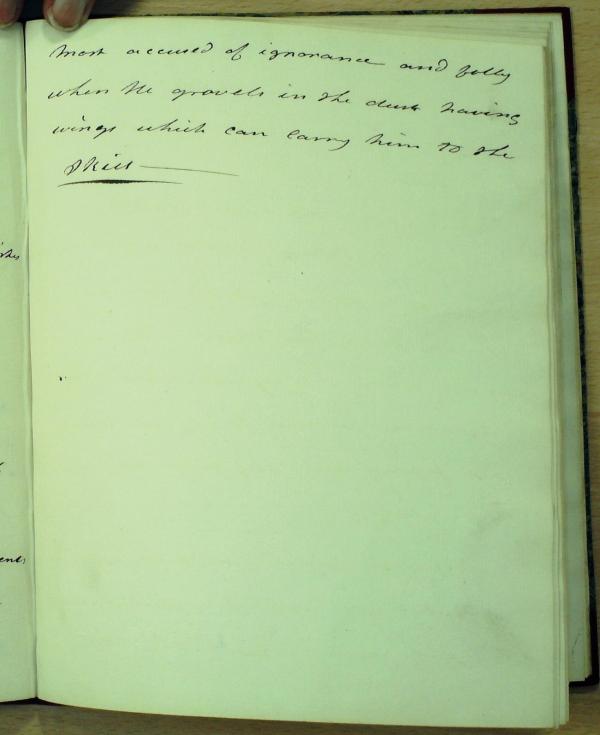 most accused of ignorance and folly
when he grovels in the dust having
wings which can carry him to the
skies